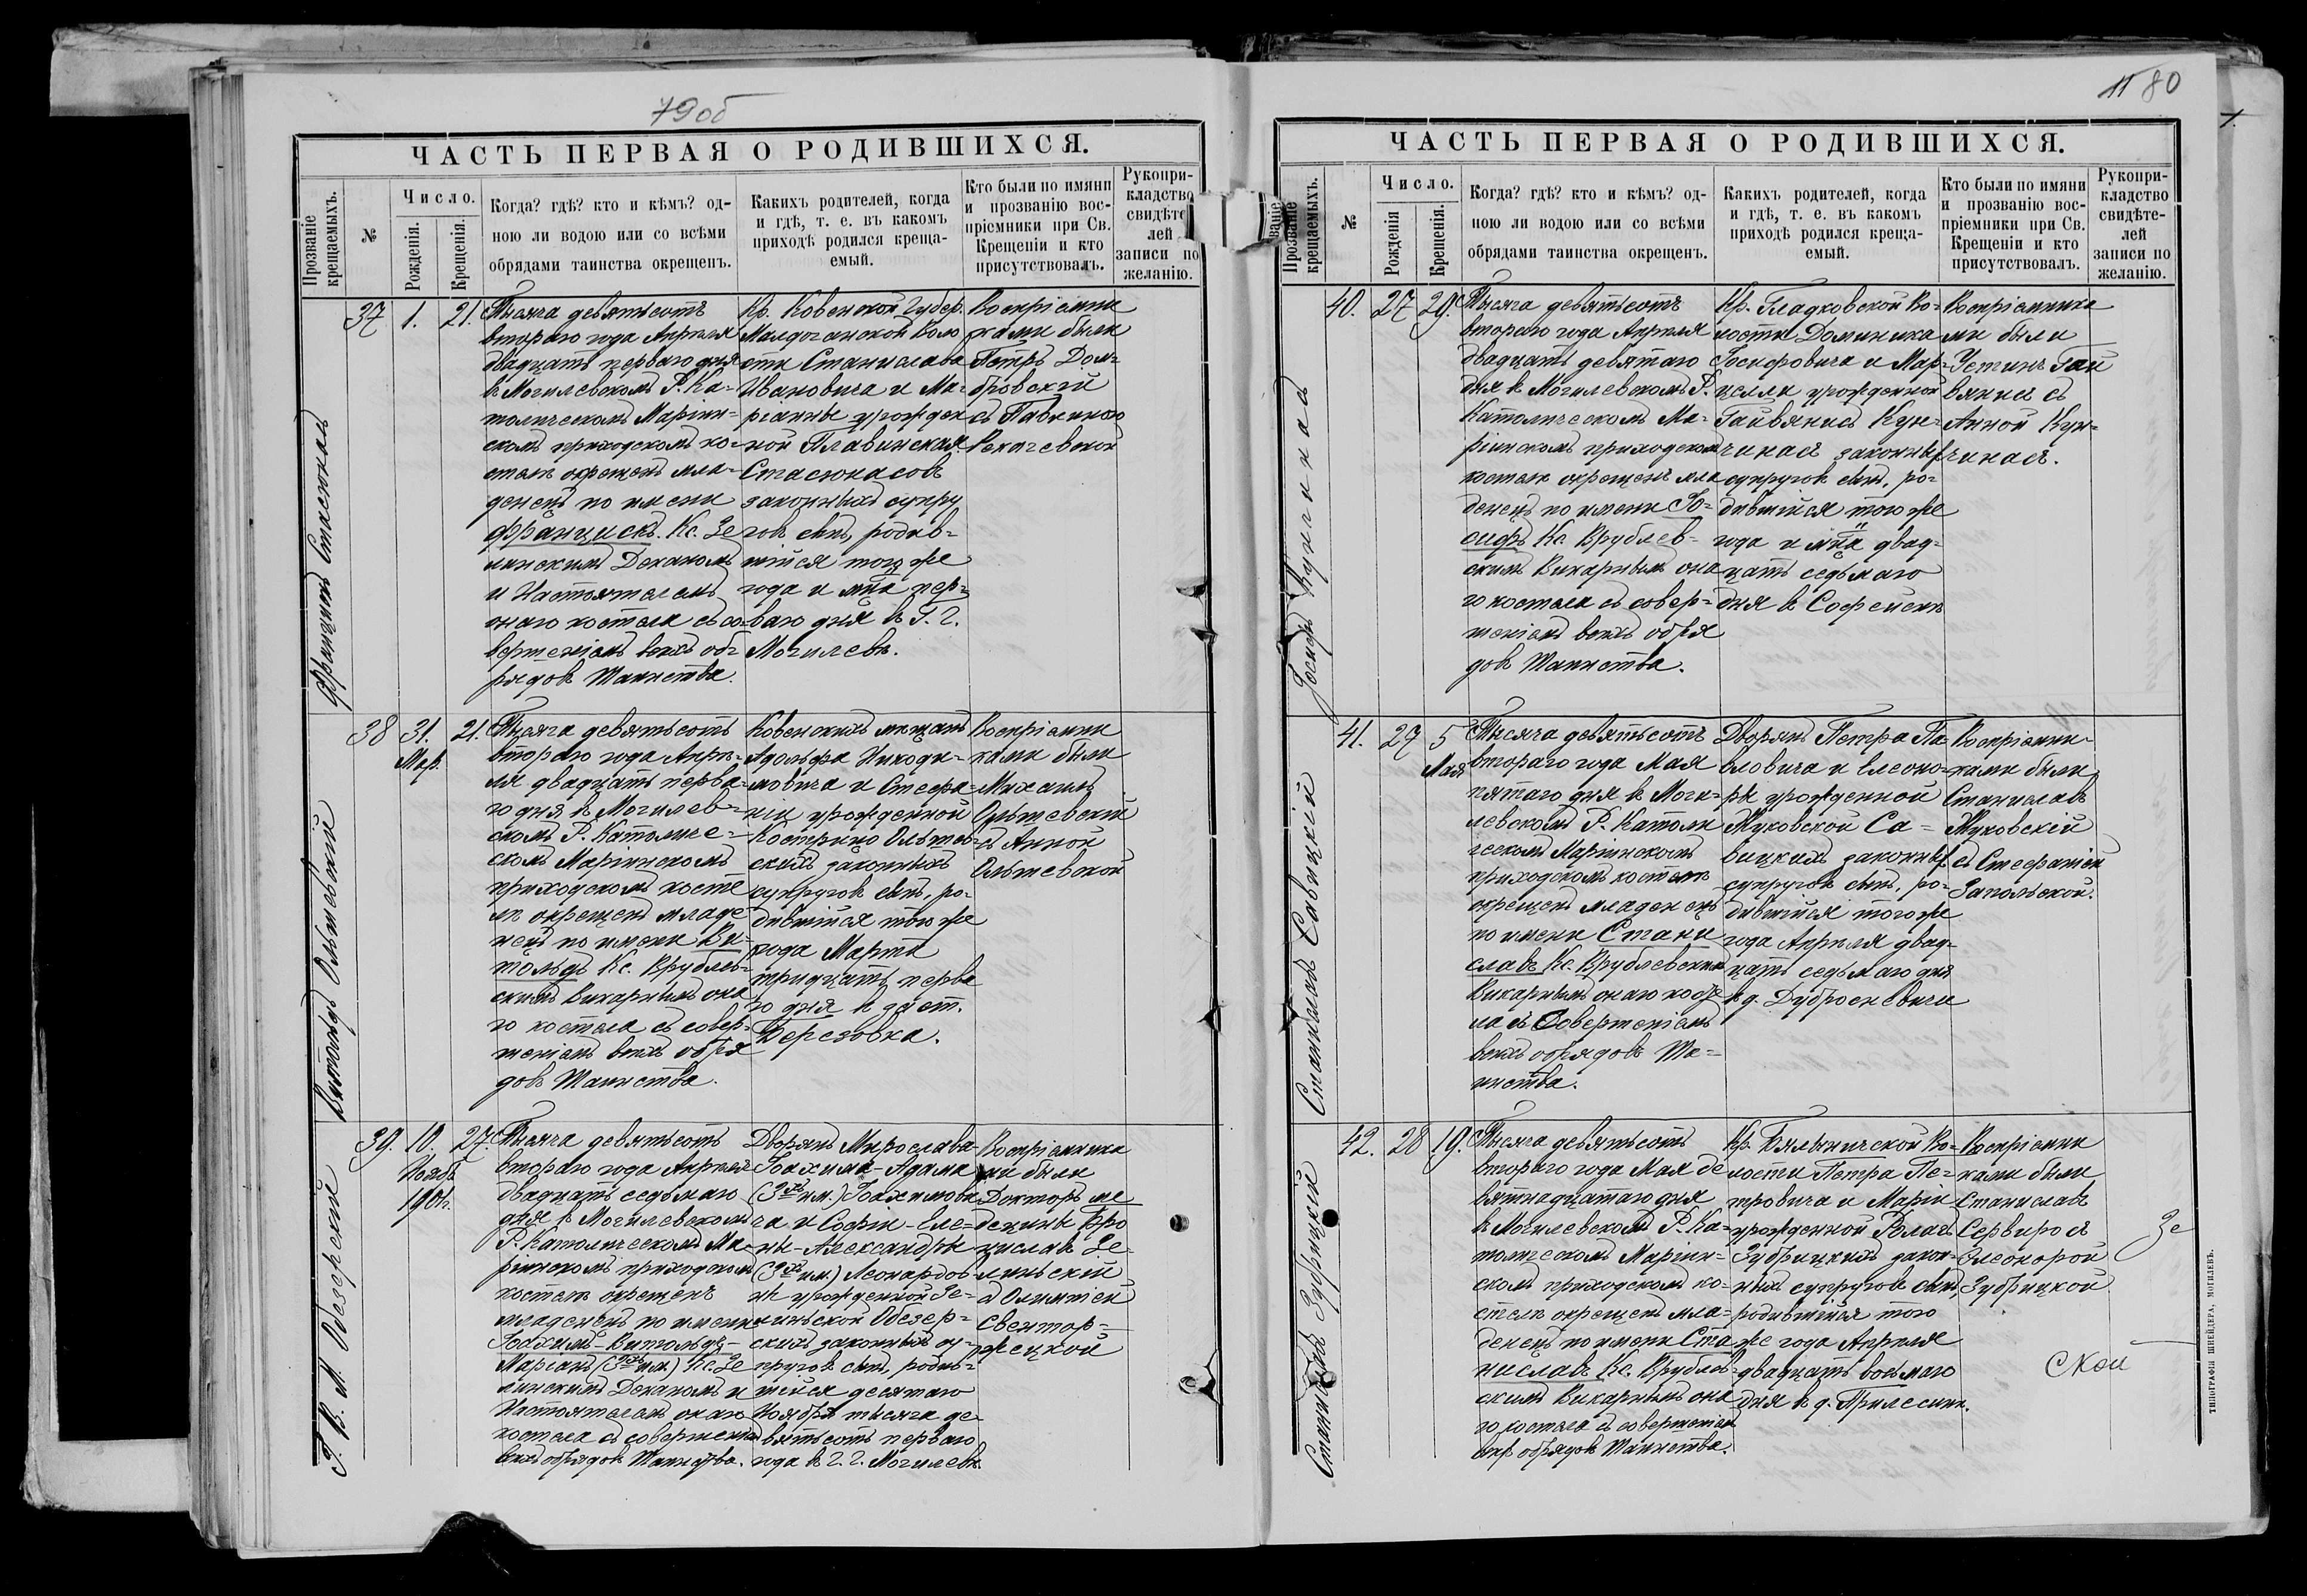 79об
ЧАСТЬ ПЕРВАЯ О РОДИВШИХСЯ.
Прозваніе крещаемыхъ.
№
Число.
Рожденія.
Крещенія.
Когда? гдѣ? кто и кѣмъ? од-
ною ли водою или со всѣми
обрядами таинства окрещенъ.
Какихъ родителей, когда
и гдѣ, т. е. въ какомъ
приходѣ родился креща-
емый.
Кто были по имяни
и прозванію вос-
пріемники при Св.
Крещеніи и кто
присутствовалъ.
Рукопри-
кладство
свидѣте
лей
записи по
желанію.
Францишкъ Стасюнас
37
1.
21.
Тысяча девятьсотъ
втораго года Апрѣля
двадцать перваго дня
въ Могилевскомъ Р. Ка-
толическомъ Маріин-
скомъ приходскомъ ко-
стелѣ окрещенъ мла-
денецъ по имени
Францискъ. Кс. Зе
линскимъ Деканомъ
и Настоятелемъ
онаго костела съ со-
вершеніемъ всѣхъ об-
рядовъ Таинства.
Кр. Ковенской Губер.
Малдочанской Воло
сти Станислава
Ивановича и Ма-
ріанны урожден
ной Плавинская
Стасюнасовъ
законныхъ супру
говъ сынъ, родив-
шійся того же
года и мца пер-
ваго дня в Г. Г.
Могилевѣ.
Воспріемни
ками были
Петръ Дом-
бровскій
съ Павлиною
Рекачевской
Витольдъ Ольшевскій
38
31.
Мар.
21.
Тысяча девятьсотъ
втораго года Апрѣ-
ля двадцать перва-
го дня въ Могилев-
скомъ Р. Католиче-
скомъ Маріинскомъ
приходскомъ косте
лѣ окрещенъ младе-
нецъ по имени Ви-
тольдъ Кс. Врублев-
скимъ Викарнымъ она
го костела съ совер-
шеніемъ всѣхъ обря
довъ Таинства.
Ковенскихъ мѣщанъ
Адольфа Никоди-
мовича и Стефа-
ніи урожденной
Костерико Ольшев-
скихъ законныхъ
супруговъ сынъ, ро-
дившійся того же
года Марта
тридцать перва
го дня в заст.
Березовка.
Воспріемни
ками были
Михаилъ
Ольшевскій
съ Анной
Ольшевской
І. В. М. Обезерскій
39.
10.
Ноябр
1901г.
27.
Тысяча девятьсотъ
втораго года Апрѣля
двадцать седьмаго
дня въ Могилевскомъ
Р. Католическомъ Ма-
ріинскомъ приходскомъ
костелѣ окрещенъ
младенецъ по имени
Іоахимъ-Витольдъ-
Маріанъ (3хъ им.) Кс. Зе
линскимъ Деканомъ и
Настоятелемъ онаго
костела съ совершеніемъ
всѣхъ обрядовъ Таинства.
Дворянъ Мирослава-
Іоахима-Адама
(3хъ им.) Іоахимови
ча и Софіи-Еле-
ны-Александры
(3хъ им.) Леонардов
ны урожденной Зе-
линьской Обезер-
скихъ законныхъ су-
пруговъ сынъ, родив-
шейся десятаго
Ноября тысяча де-
вятьсотъ перваго
года в Г. Г. Могилевѣ.
Воспріемника
ми были
Докторъ ме
децины Бро
ниславъ Зе
линьскій
съ Олимпіей
Свентор-
жецкой
11 80
ЧАСТЬ ПЕРВАЯ О РОДИВШИХСЯ.
Прозваніе крещаемыхъ.
№
Число.
Рожденія
Крещенія.
Когда? гдѣ? кто и кѣмъ? од-
ною ли водою или со всѣми
обрядами таинства окрещенъ.
Какихъ родителей, когда
и гдѣ, т. е. въ какомъ
приходѣ родился креща-
емый.
Кто были по имяни
и прозванію вос-
пріемники при Св.
Крещеніи и кто
присутствовалъ.
Рукопри-
кладство
свидѣте-
лей
записи по
желанію.
Іосифъ Кунчинас
40.
27
29.
Тысяча девятьсотъ
втораго года Апрѣля
двадцать девятаго
дня въ Могилевскомъ Р.
Католическомъ Ма-
ріинскомъ приходскомъ
костелѣ окрещенъ мла
денецъ по имени Іо-
сифъ Кс. Врублев-
скимъ Викарнымъ она
го костела съ совер-
шеніемъ всѣхъ обря
довъ Таинства.
Кр. Гладковской Во-
лости Доминика
Іосифовича и Мар-
целли урожденной
Гайвянисъ Кун-
чинасъ законныхъ
супруговъ сынъ, ро-
дившійся того же
года и мца двад-
цать седьмаго
дня в Софейскѣ
Воспріемника
ми были
Устинъ Гай
вянисъ съ
Анной Кун-
чинасъ.
Станиславъ Савицкій
41.
27
5
Мая
Тысяча девятьсотъ
втораго года Мая
пятаго дня въ Моги-
левскомъ Р. Католи
ческомъ Маріинскомъ
приходскомъ костелѣ
окрещенъ младенецъ
по имени Стани
славъ Кс. Врублевскимъ
Викарнымъ онаго косте
ла съ Совершеніемъ
всѣхъ обрядовъ Та-
инства.
Дворянъ Петра Па-
вловича и Елеоно-
ры урожденной
Жуковской Са-
вицкихъ законныхъ
супруговъ сынъ, ро-
дившійся того же
года Апрѣля двад-
цать седьмаго дня
в д. Дубросневичи
Воспріемни-
ками были
Станиславъ
Жуковскій
съ Стефаніей
Запольской.
Станиславъ Зубрицкій
42.
28
19.
Тысяча девятьсотъ
втораго года Мая де
вятнадцатаго дня
въ Могилевскомъ Р. Ка-
толическомъ Маріин-
скомъ приходскомъ ко-
стелѣ окрещенъ мла-
денецъ по имени Ста
ниславъ Кс. Врублев-
скимъ Викарнымъ она
го костела съ совершеніемъ
всѣхъ обрядовъ Таинства.
Кр. Бялыничской Во-
лости Петра Пе-
тровича и Маріи
урожденной Ролас
Зубрицкихъ закон-
ныхъ супруговъ сынъ,
родившійся того
же года Апрѣля
двадцать восьмаго
дня в д. Прилесини.
Воспріемни
ками были
Станиславъ
Сервиросъ
Элеонорой
Зубрицкой
Зе
ской
ТИПОГРАФІЯ ШНЕЙДЕРА, МОГИЛЕВЪ.